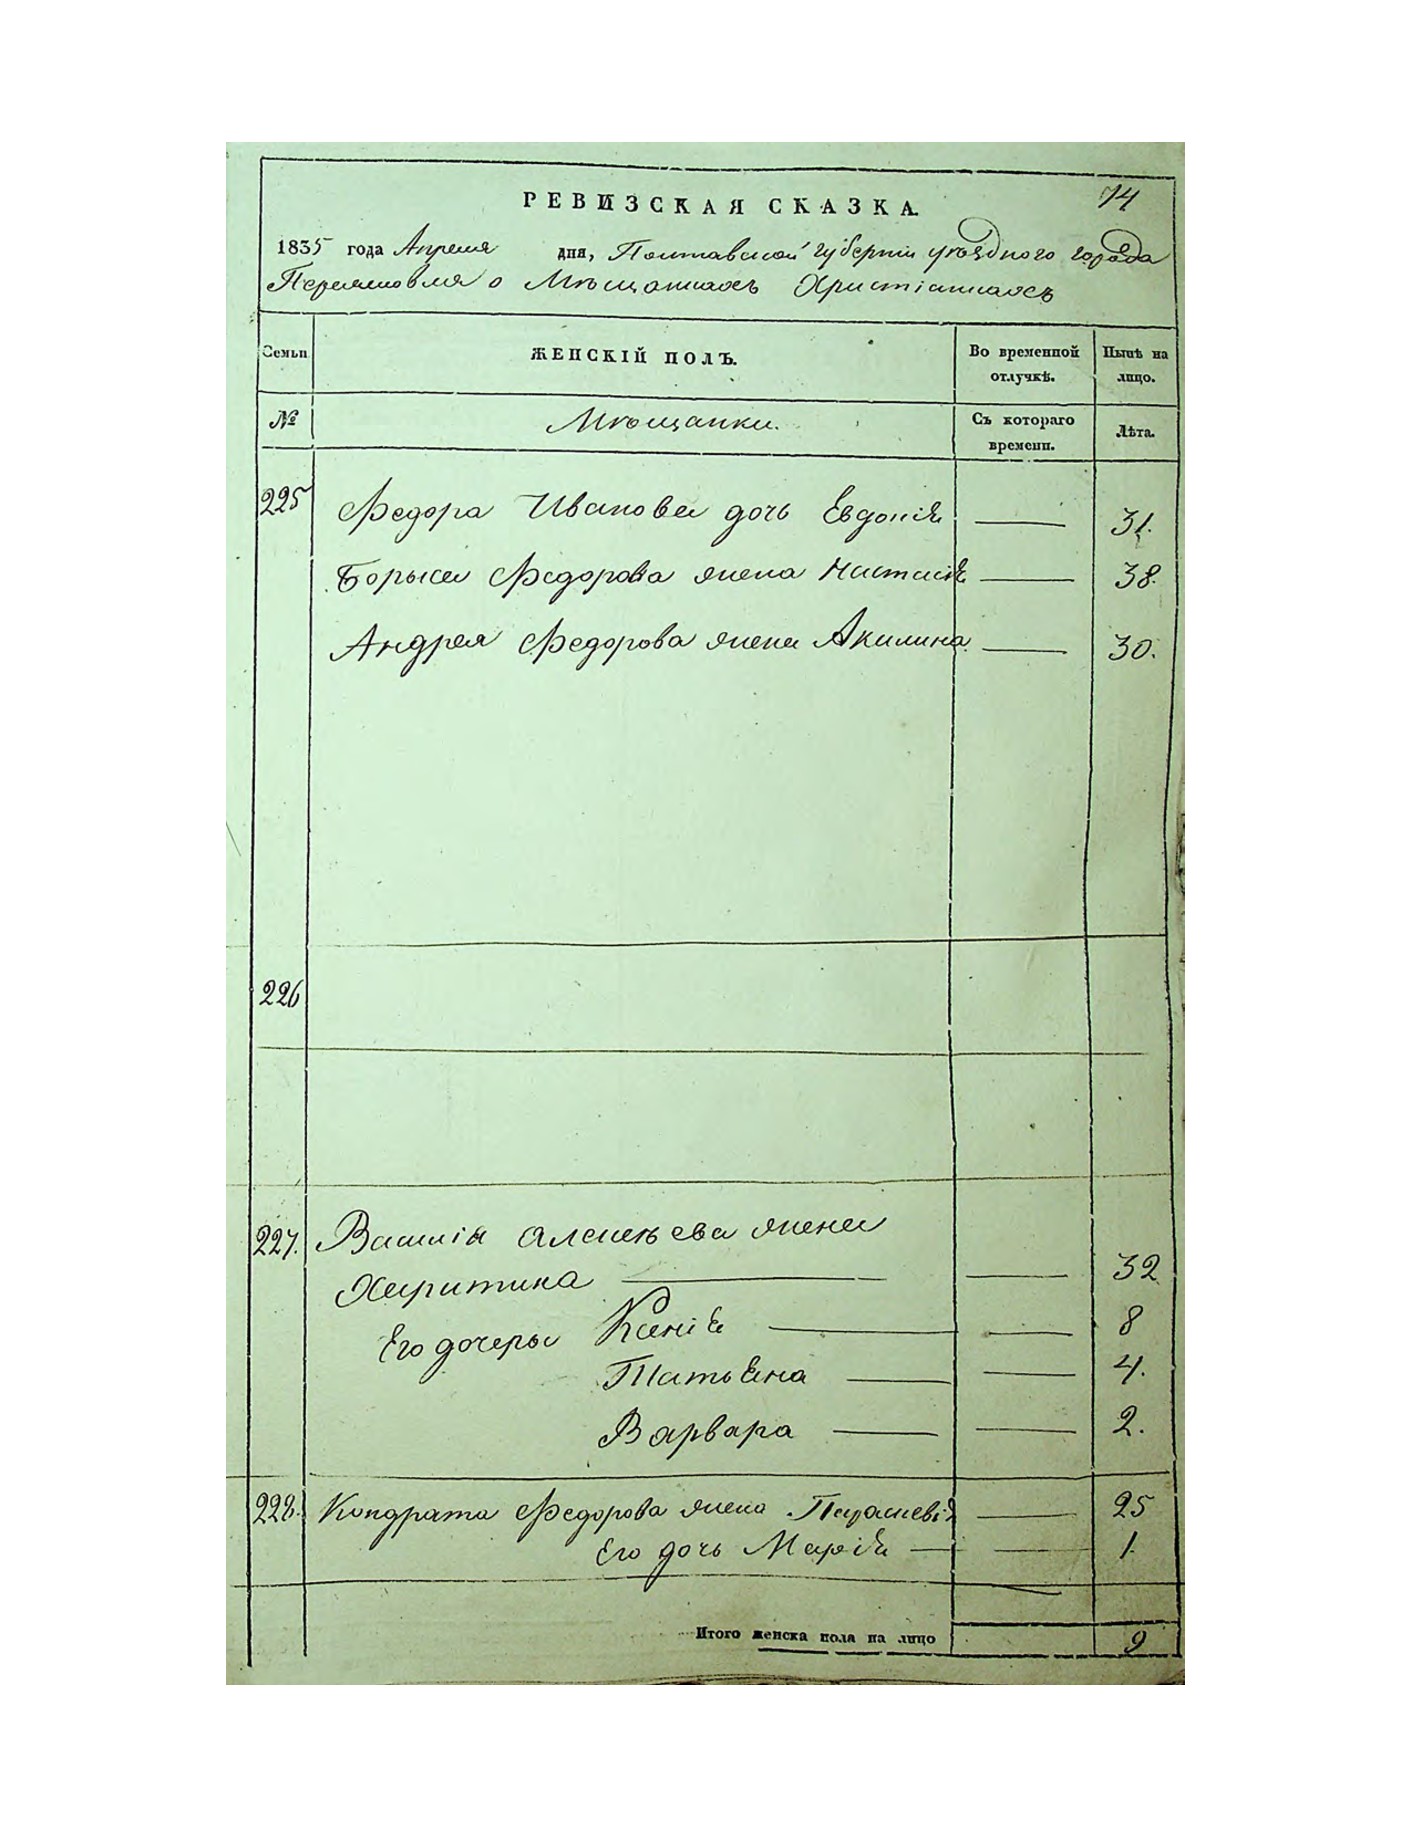 74
РЕВИЗСКАЯ СКАЗКА.
1835 года Апреля дня, Полтавской губерніи уѣзднаго города
Переяславля о Мѣщанахъ Христіанахъ
Семьи ЖЕНСКІЙ ПОЛЪ. Во временной отлучкѣ. Нынѣ на лицо.
№ Мѣщанки. Съ котораго времени. Лѣта.
225 Федора Иванова дочь Евдокія — 31.
Бориса Федорова жена Настасія — 38.
Андрея Федорова жена Акилина — 30.
226
227. Василія Алексѣева жена
Харитина — — 32
Его дочеры Ксенія — — 8
Татьяна — — 4.
Варвара — — 2.
228. Кондрата Федорова жена Параскевія — 25
Его дочь Марія — — 1.
Итого женска пола на лицо 9